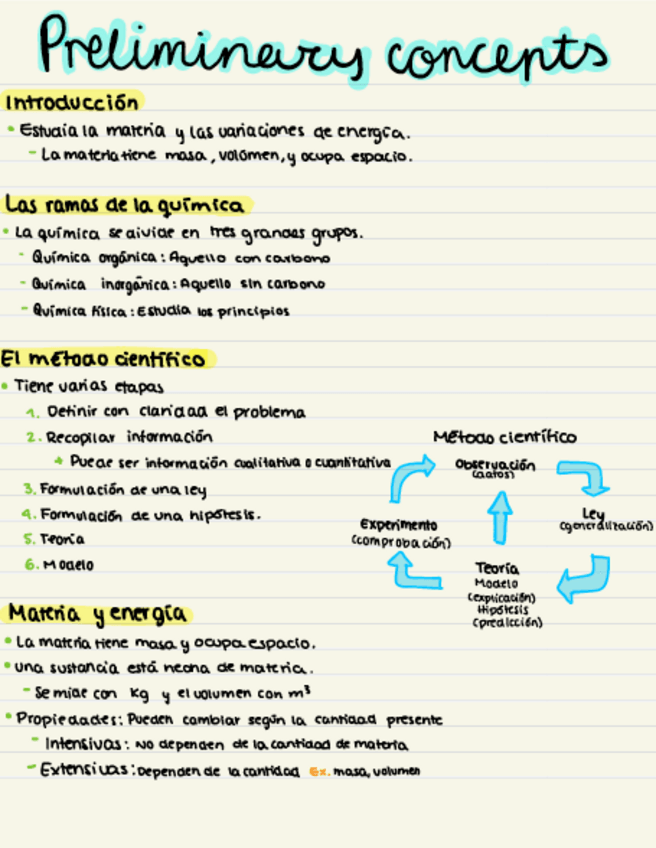 Preliminary concepts
Introducción
• Estudia la materia y las variaciones de energía.
- La materia tiene masa, volúmen, y ocupa espacio.
Las ramas de la química
• La química se divide en tres grandes grupos.
- Química orgánica: Aquello con carbono
- Química inorgánica: Aquello sin carbono
- Química física: Estudia los principios
El método científico
• Tiene varias etapas
1. Definir con claridad el problema
2. Recopilar información
→ Puede ser información cualitativa o cuantitativa
3. Formulación de una ley
4. Formulación de una hipótesis.
5. Teoría
6. Modelo
Método científico
Observación
(datos)
Ley
(generalización)
Teoría
Modelo
(explicación)
Hipótesis
(predicción)
Experimento
(comprobación)
Materia y energía
• La materia tiene masa y ocupa espacio.
• una sustancia está hecha de materia.
- Se mide con Kg y el volumen con m³
• Propiedades: Pueden cambiar según la cantidad presente
- Intensivas: No dependen de la cantidad de materia
- Extensivas: Dependen de la cantidad Ex. masa, volumen